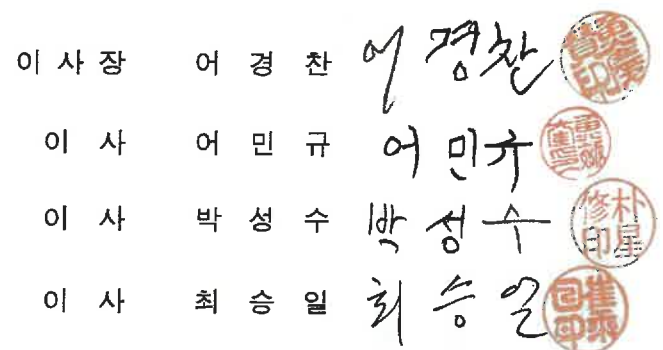 이 사 장 어 경 찬 어 경찬
이 사 어 민 규 어 민규
이 사 박 성 수 박 성 수 朴星修印
이 사 최 승 일 최 승 일